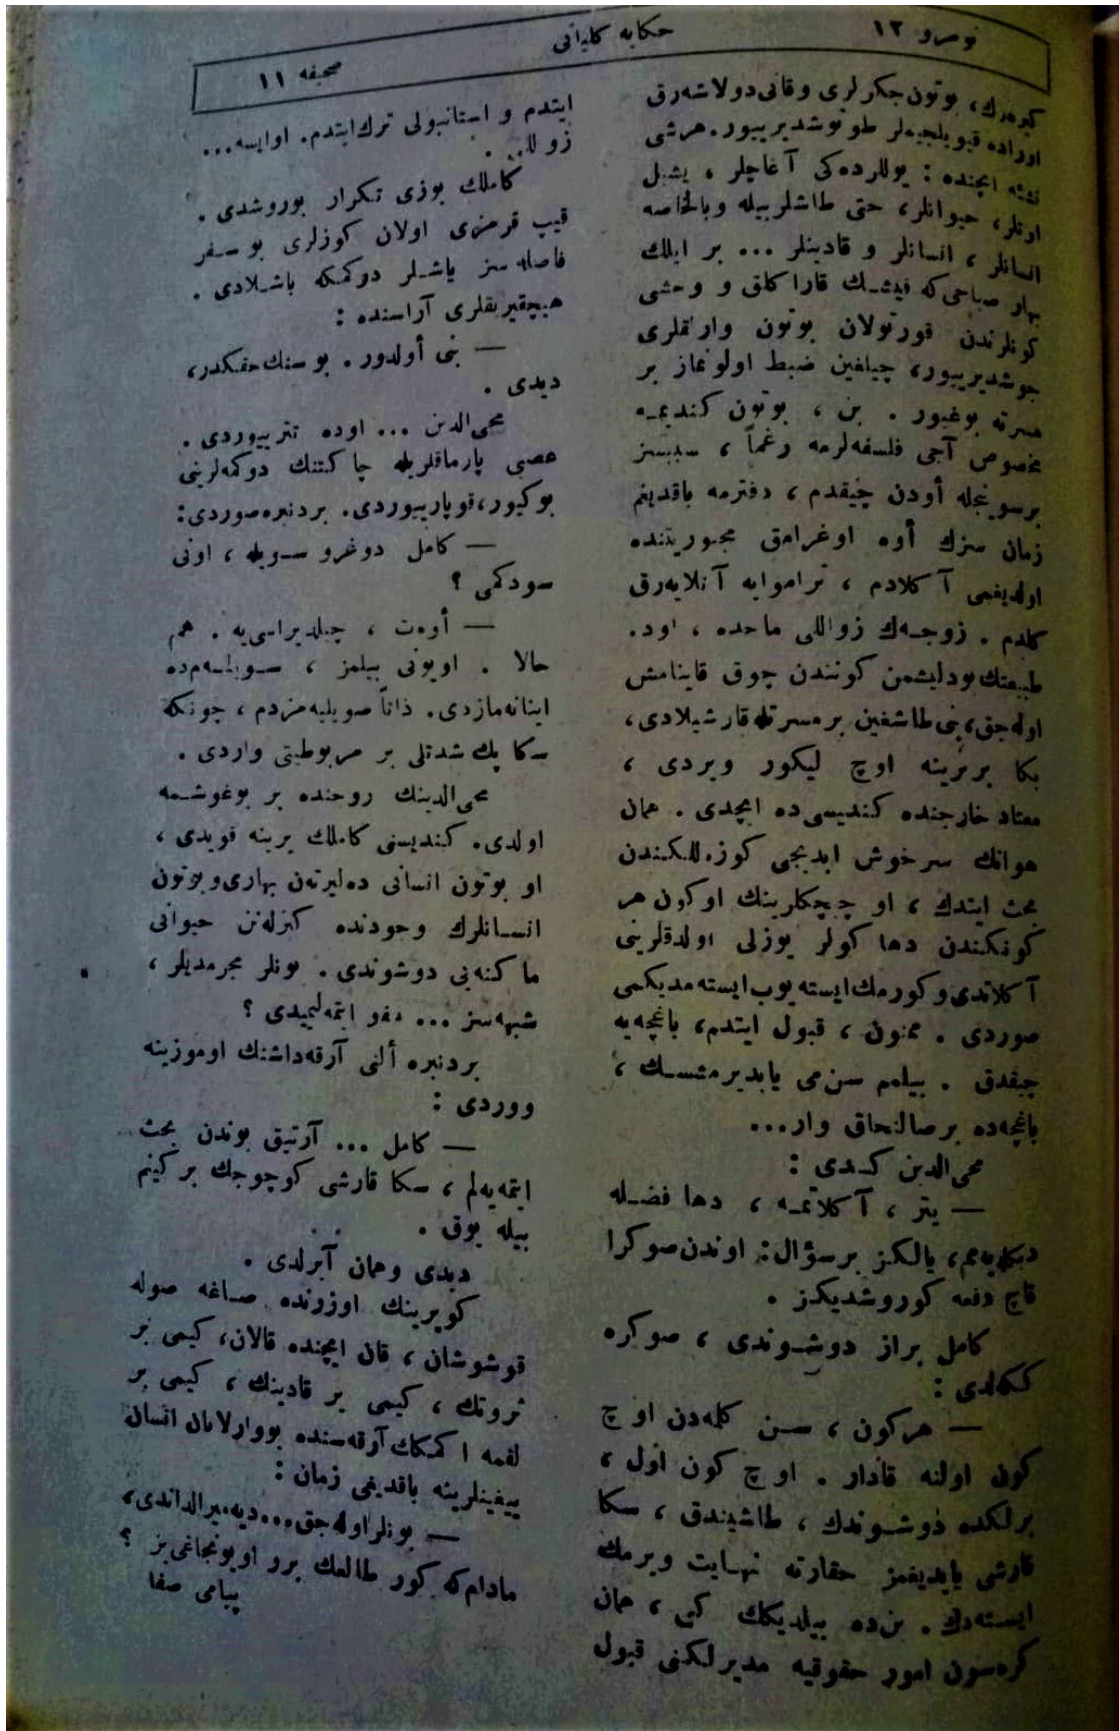 نومرو ١٢
حكايه كلياتى
صحيفه ١١
كيرەرك، بوتون جكرلرى و قانى دولاشەرق
اوراده قيويلجيملر طوتوشديرييور. هرشى
نشئه ايچنده : يوللرده‌كى آغاچلر ، يشيل
اوتلر، حيوانلر، حتى طاشلر بيله وبالخاصه
انسانلر ، انسانلر و قادينلر ... بر ايلك
بهار صباحى كه قيشـك قارا كلق و وحشى
كونلرندن قورتولان بوتون وارلقلرى
جوشديرييور، چيلغين ضبط اولونماز بر
مسرته بوغيور . بن ، بوتون كنديمـه
مخصوص آجى فلسفه‌لرمه رغماً ، سببسز
برسوينجله أودن چيقدم ، دفترمه باقديغم
زمان سزك أوه اوغرامق مجبوريتنده
اولديغمى آكلادم ، تراموايه آتلايه‌رق
كلدم . زوجـه‌ك زواللى ماجده ، اوده
طبيعتك بودليشمن كونندن چوق قاينامش
اوله‌جق، بنى طاشغين بر مسرتله قارشيلادى،
بكا بربرينه اوچ ليكور ويردى ،
معتاد خارجنده كنديسى ده ايچدى . همان
هوانك سرخوش ايديجى كوزه‌للكندن
بحث ايتدك ، او چيچكلرينك اوكون هر
كونكندن دها كولر يوزلى اولدقلرينى
آكلاتدى و كورمك ايسته‌يوب ايسته‌مديكمى
صوردى . ممنون ، قبول ايتدم، باغچه‌يه
چيقدق . بيلمم سن‌مى ياپديرمشسـك ،
باغچه‌ده بر صالنجاق وار...
محى‌الدين كـسدى :
— يتر ، آكلاتمـه ، دها فضـله
ديكله‌يه‌مم، يالكز بر سؤال: اوندن صوكرا
قاچ دفعه كوروشديكز .
كامل براز دوشـوندى ، صوكره
ككه‌لدى :
— هركون ، سـن كلمه‌دن اوچ
كون اولنه قادار . اوچ كون اول ،
برلكده دوشـوندك ، طاشيندق ، سكا
قارشى ياپديغمز حقارته نهـايت ويرمك
ايسته‌دك . بن‌ده بيلديكك كبى ، همان
كره‌سون امور حقوقيه مديرلكنى قبول
ايتدم و استانبولى ترك ايتدم. اوايسه...
زوللـ . .
كاملك يوزى تكرار بوروشدى .
قيپ قرمزى اولان كوزلرى بو سـفر
فاصله‌سز ياشـلر دوكمكه باشـلادى .
هيچقيريقلرى آراسنده :
— بنى أولدور . بو سنك حقكدر،
ديدى .
محى‌الدين ... اوده تتره‌ييوردى .
عصبى پارماقلريله چاكتنك دوكمه‌لرينى
بوكيور، قوپارييوردى. بردنبره صوردى:
— كامل دوغرو سـويله ، اونى
سودكمى ؟
— أوه‌ت ، چيلديراسى‌يه . هم
حالا . اوبونى بيلمز ، سـويلـه‌م‌ده
اينانه‌مازدى. ذاتاً صويليه‌مزدم ، چونكه
سكا پك شدتلى بر مربوطيتى واردى .
محى‌الدينك روحنده بر بوغوشـمه
اولدى. كنديسنى كاملك يرينه قويدى ،
او بوتون انسانى ده‌ليرته‌ن بهارى و بوتون
انسـانلرك وجودنده كيزله‌نن حيوانى
ماكنه‌يى دوشوندى . بونلر مجرمديلر ،
شبهه‌سز ... عفو ايتمه‌ليميدى ؟
بردنبره ألنى آرقه‌داشنك اوموزينه
ووردى :
— كامل ... آرتيق بوندن بحث
ايتمه‌يه‌لم ، سكا قارشى كوچوجك بر كينم
بيله يوق .
ديدى و همان آيرلدى .
كوپرينك اوزرنده صـاغه صوله
قوشوشان ، قان ايچنده قالان، كيمى بر
ثروتك ، كيمى بر قادينك ، كيمى بر
لقمه اكمكك آرقه‌سنده يووارلانان انسان
ييغينلرينه باقديغى زمان :
— بونلر اوله‌جق... ديه ميرالداندى،
مادام كه كور طالعك برر اويونجاغى‌يز ؟
پيامى صفا